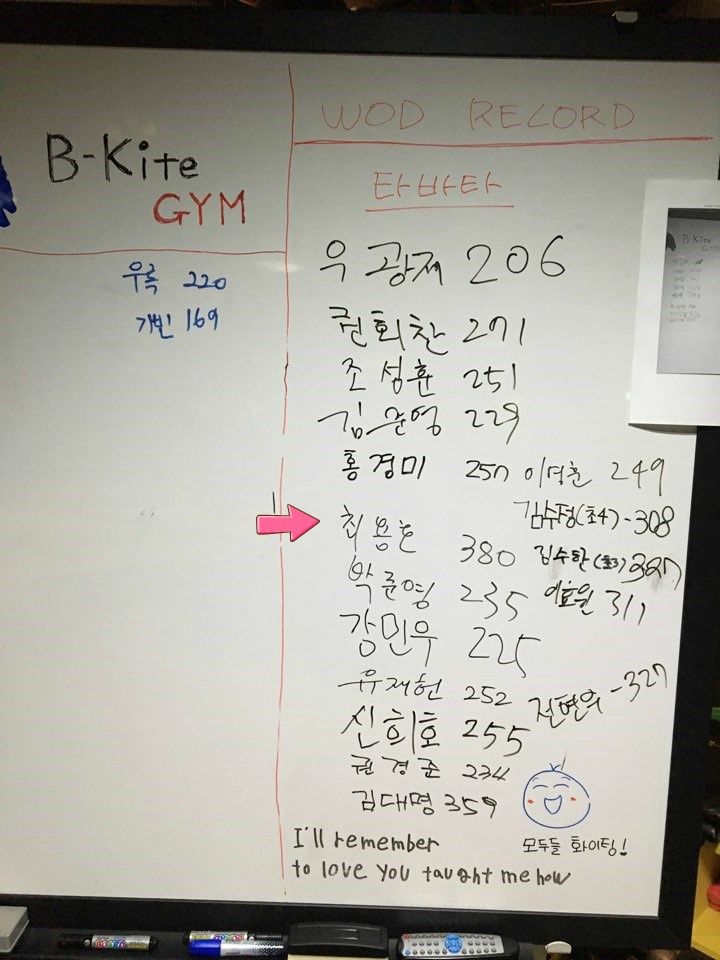 B-Kite
GYM
우룩 220
개인 169
WOD RECORD
타바타
우광제 206
권회찬 271
조성훈 251
김준영 229
홍경미 257
이명훈 249
김수정(초4) -308
최용호 380
김수한(초3) 387
박준영 235
이효원 311
강민우 225
유재헌 252
전현우 -327
신희호 255
권경준 234
김대명 359
모두들 화이팅!
I'll remember
to love you taught me how
B-Kite
GYM